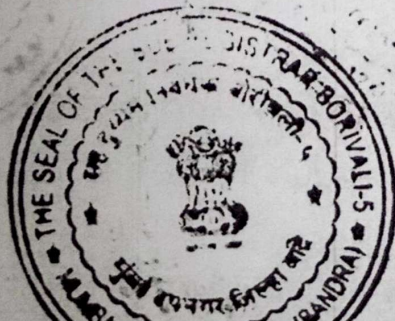 THE SEAL OF THE SUB REGISTRAR BORIVALI-5
सह दुय्यम निबंधक बोरीवली-५
मुंबई उपनगर जिल्हा
(BANDRA)